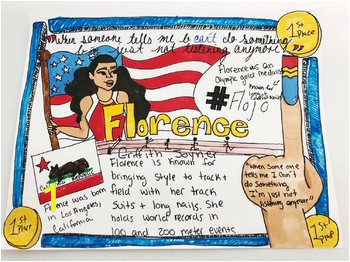 1st Place
"When someone tells me I can't do something
I'm just not listening anymore"
1st Place
Florence was an
Olympic gold medalist
Known for
#FloJo
Florence
Griffith Joyner
Florence is known for
bringing Style to track +
field with her track
Suits + long nails. She
holds world records in
100 and 200 meter events
Florence was born
in Los Angeles
California
"When Some one
tells me I Can't
do Something,
I'm just not
listening anymore"
1st Place
1st Place